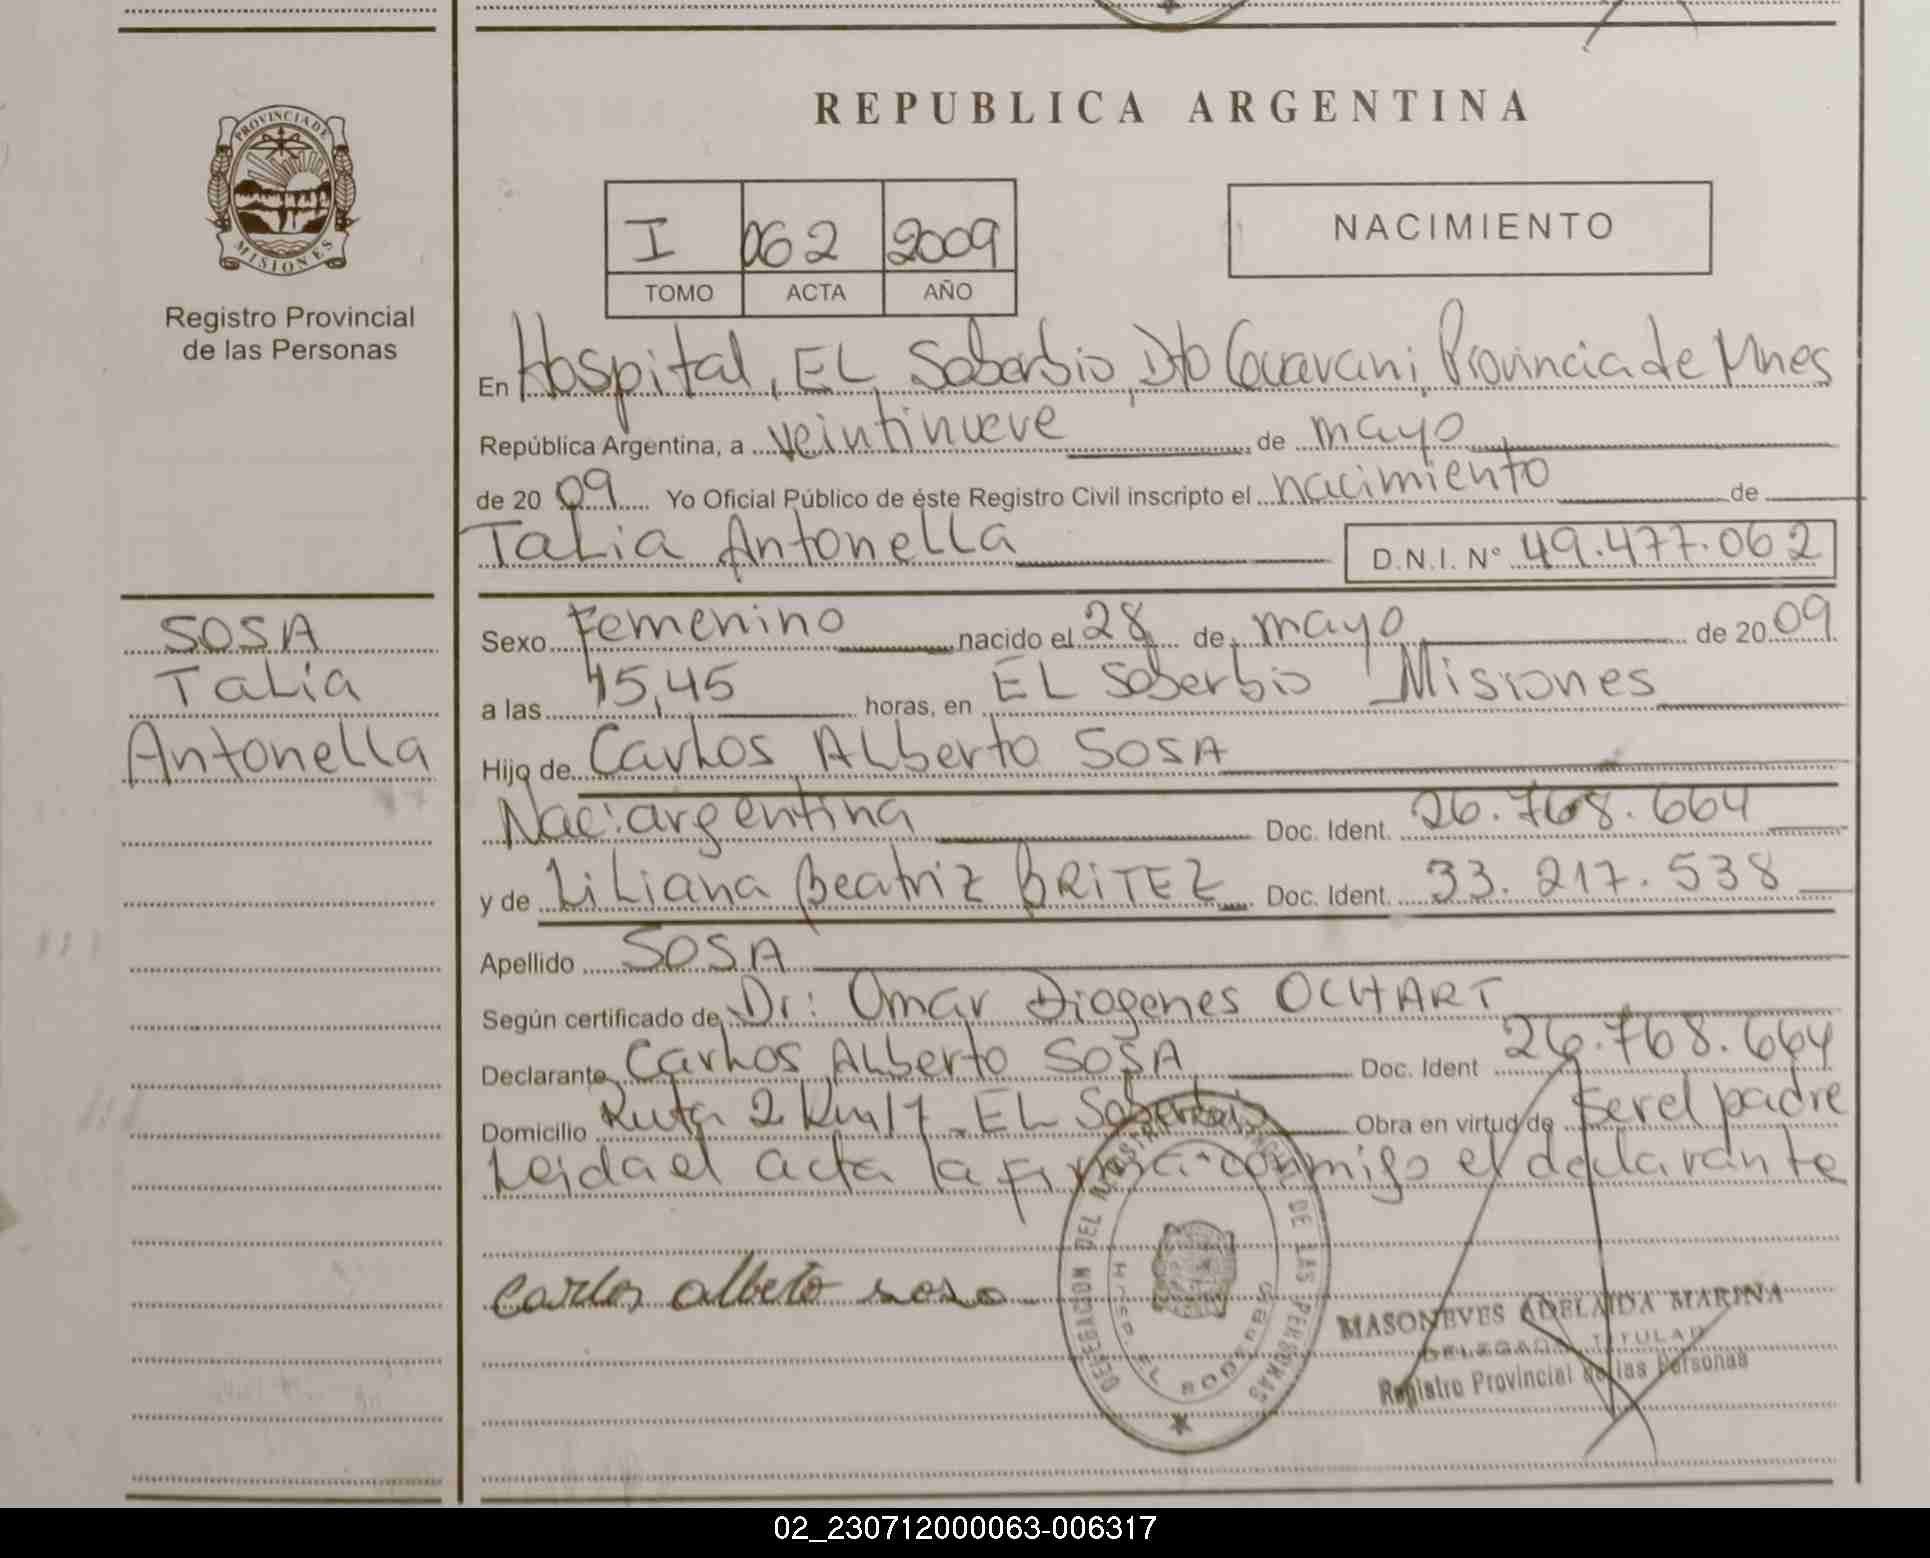 REPUBLICA ARGENTINA
PROVINCIA DE MISIONES
Registro Provincial
de las Personas
I 062 2009
TOMO ACTA AÑO
NACIMIENTO
En Hospital, EL Soberbio, Dto Guarani, Provincia de Mnes
República Argentina, a veintinueve de mayo
de 2009 Yo Oficial Público de éste Registro Civil inscripto el nacimiento de
Talia Antonella D.N.I. N° 49.477.062
SOSA
Talia
Antonella
Sexo Femenino nacido el 28 de mayo de 2009
a las 15,45 horas, en EL Soberbio Misiones
Hijo de Carlos ALberto SOSA
Nac: argentina Doc. Ident. 26.768.664
y de LiLiana Beatriz BRiTEZ Doc. Ident. 33.217.538
Apellido SOSA
Según certificado de Dr: Omar Diogenes OCHART
Declarante Carlos ALberto SOSA Doc. Ident 26.768.664
Domicilio Ruta 2 Km 17 - EL Soberbio Obra en virtud de ser el padre
Leida el acta la firma conmigo el declarante
carlos alberto sosa
DELEGACION DEL REGISTRO DE LAS PERSONAS
EL SOBERBIO
MASONEVES ADELAIDA MARINA
DELEGADA TITULAR
Registro Provincial de las Personas
02_230712000063-006317